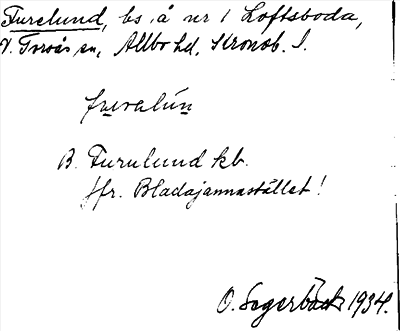 Furelund, bs å nr 1 Loftsboda,
V. Torsås sn, Allbo hd, Kronob. l.
furelún
B. Furulund kb.
Jfr. Bladajannastället!
O. Segerbäck 1934.